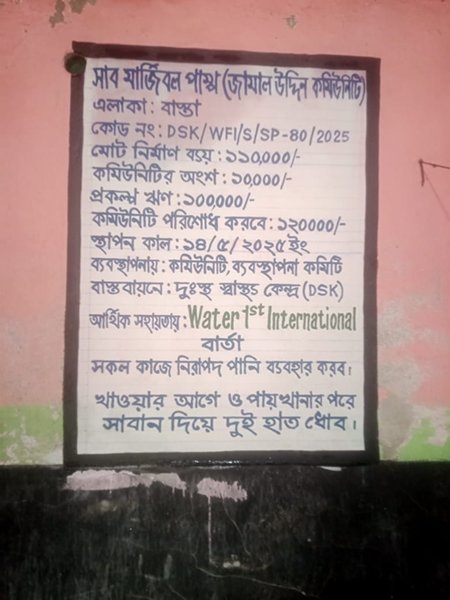 সাব মার্জিবল পাম্প (জামাল উদ্দিন কমিউনিটি)
এলাকা: বাস্তা
কোড নং: DSK/WFI/S/SP-80/2025
মোট নির্মাণ ব্যয়: ১১০,০০০/-
কমিউনিটির অংশ: ১০,০০০/-
প্রকল্প ঋণ: ১০০,০০০/-
কমিউনিটি পরিশোধ করবে: ১২০০০০/-
স্থাপন কাল: ১৪/৫/২০২৫ইং
ব্যবস্থাপনায়: কমিউনিটি, ব্যবস্থাপনা কমিটি
বাস্তবায়নে: দুঃস্থ স্বাস্থ্য কেন্দ্র (DSK)
আর্থিক সহায়তায়: Water 1st International
বার্তা
সকল কাজে নিরাপদ পানি ব্যবহার করব।
খাওয়ার আগে ও পায়খানার পরে
সাবান দিয়ে দুই হাত ধোব।